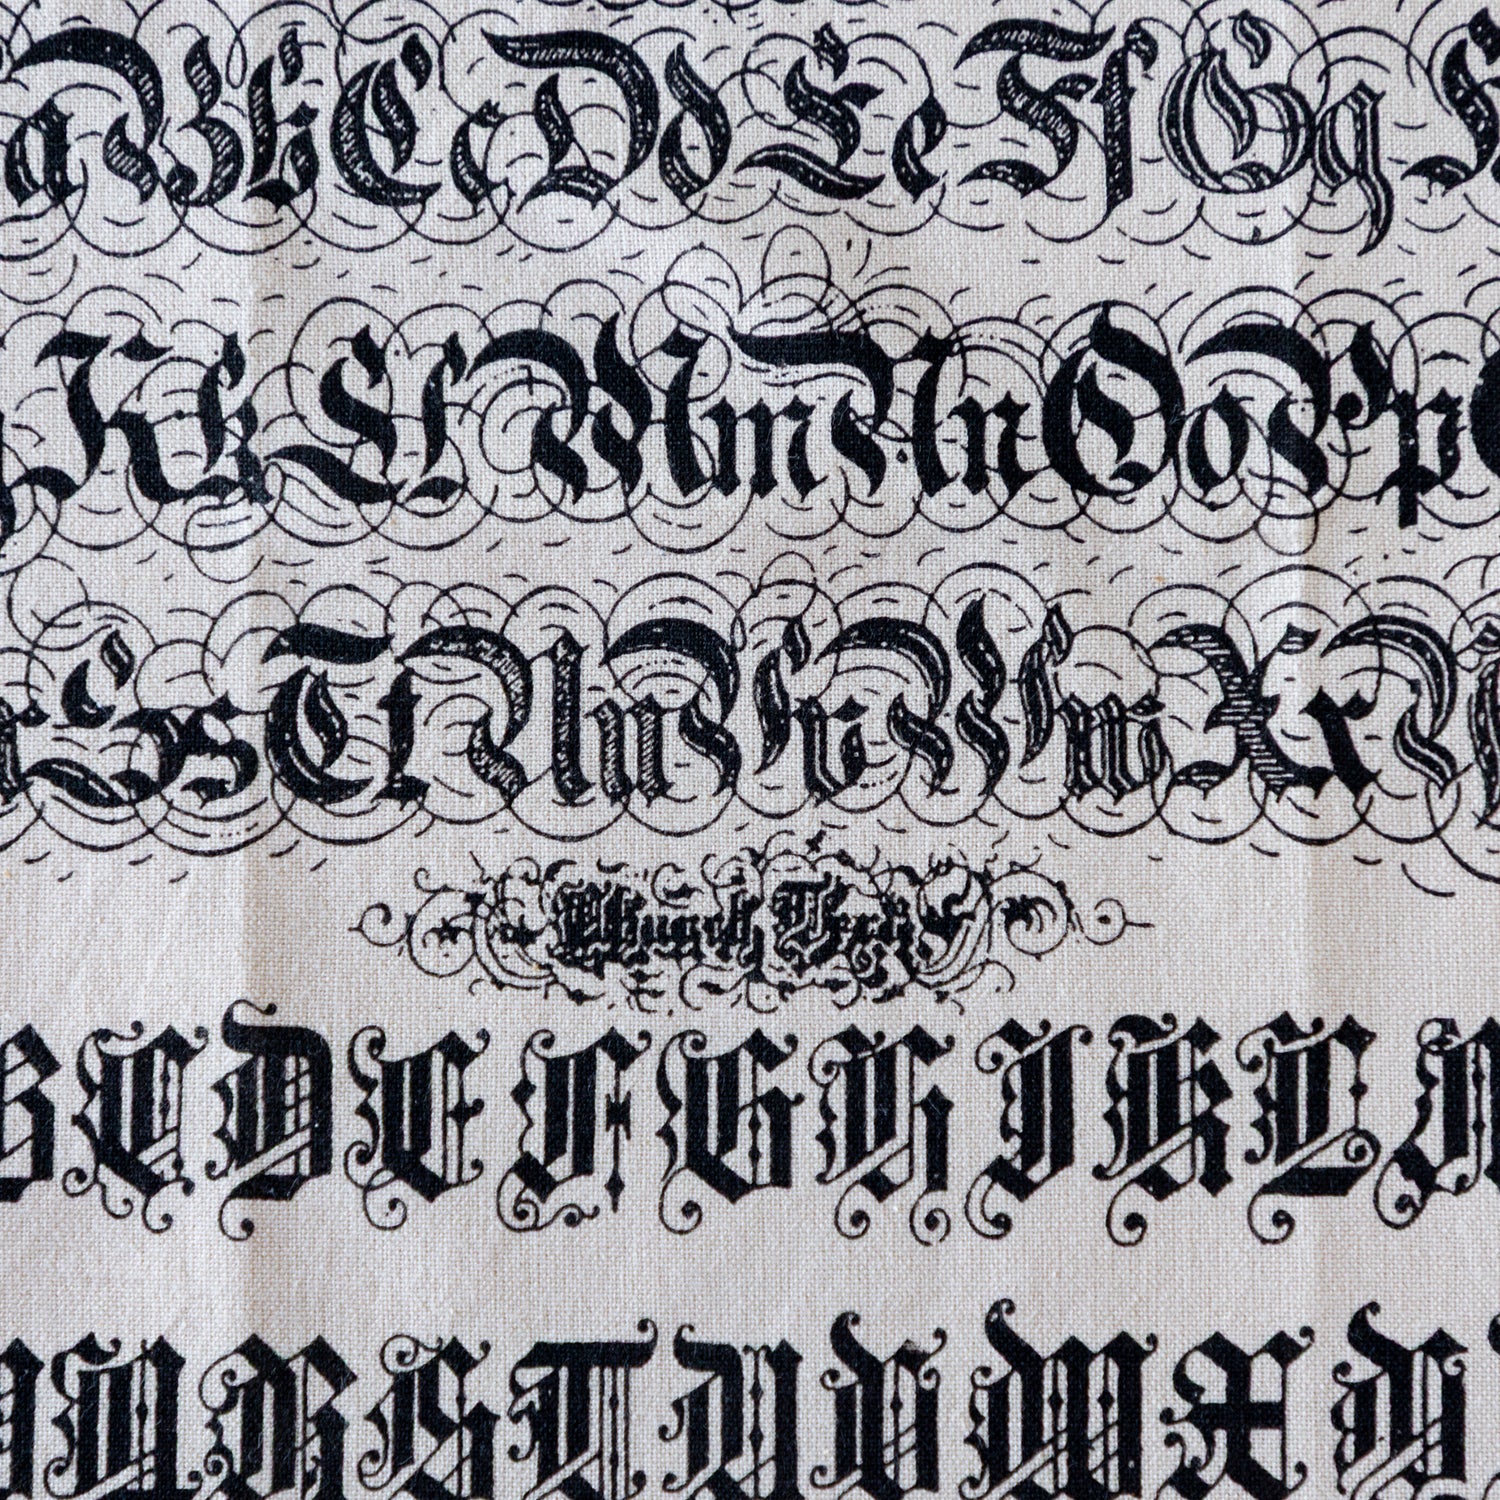 a B b C c D d E e F f G g H
K k L l M m N n O o P p
S s T t U u V v W w X x Y
B C D E F G H I K L M
Q R S T U V W X Y